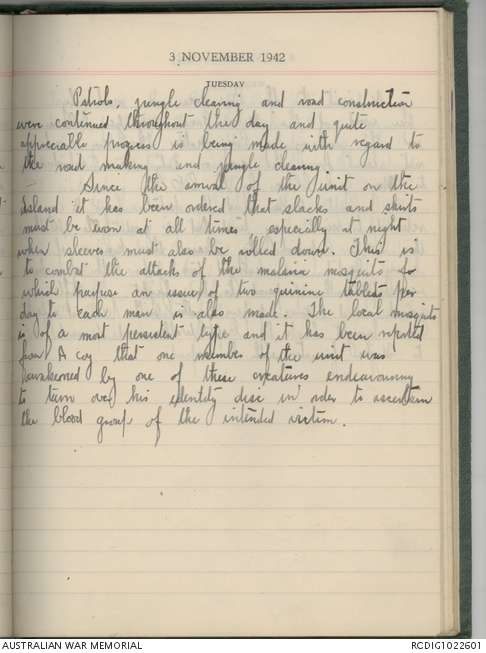 3 NOVEMBER 1942
TUESDAY
Patrols, jungle clearing and road construction
were continued throughout the day and quite
appreciable progress is being made with regard to
the road making and jungle clearing.
Since the arrival of the unit on the
Island it has been ordered that slacks and shirts
must be worn at all times especially at night
when sleeves must also be rolled down. This is
to combat the attacks of the malaria mosquito for
which purpose an issue of two quinine tablets per
day to each man is also made. The local mosquito
is of a most persistent type and it has been reported
from A coy that one member of the unit was
awakened by one of these creatures endeavouring
to turn over his identity disc in order to ascertain
the blood group of the intended victim.
AUSTRALIAN WAR MEMORIAL
RCDIG1022601